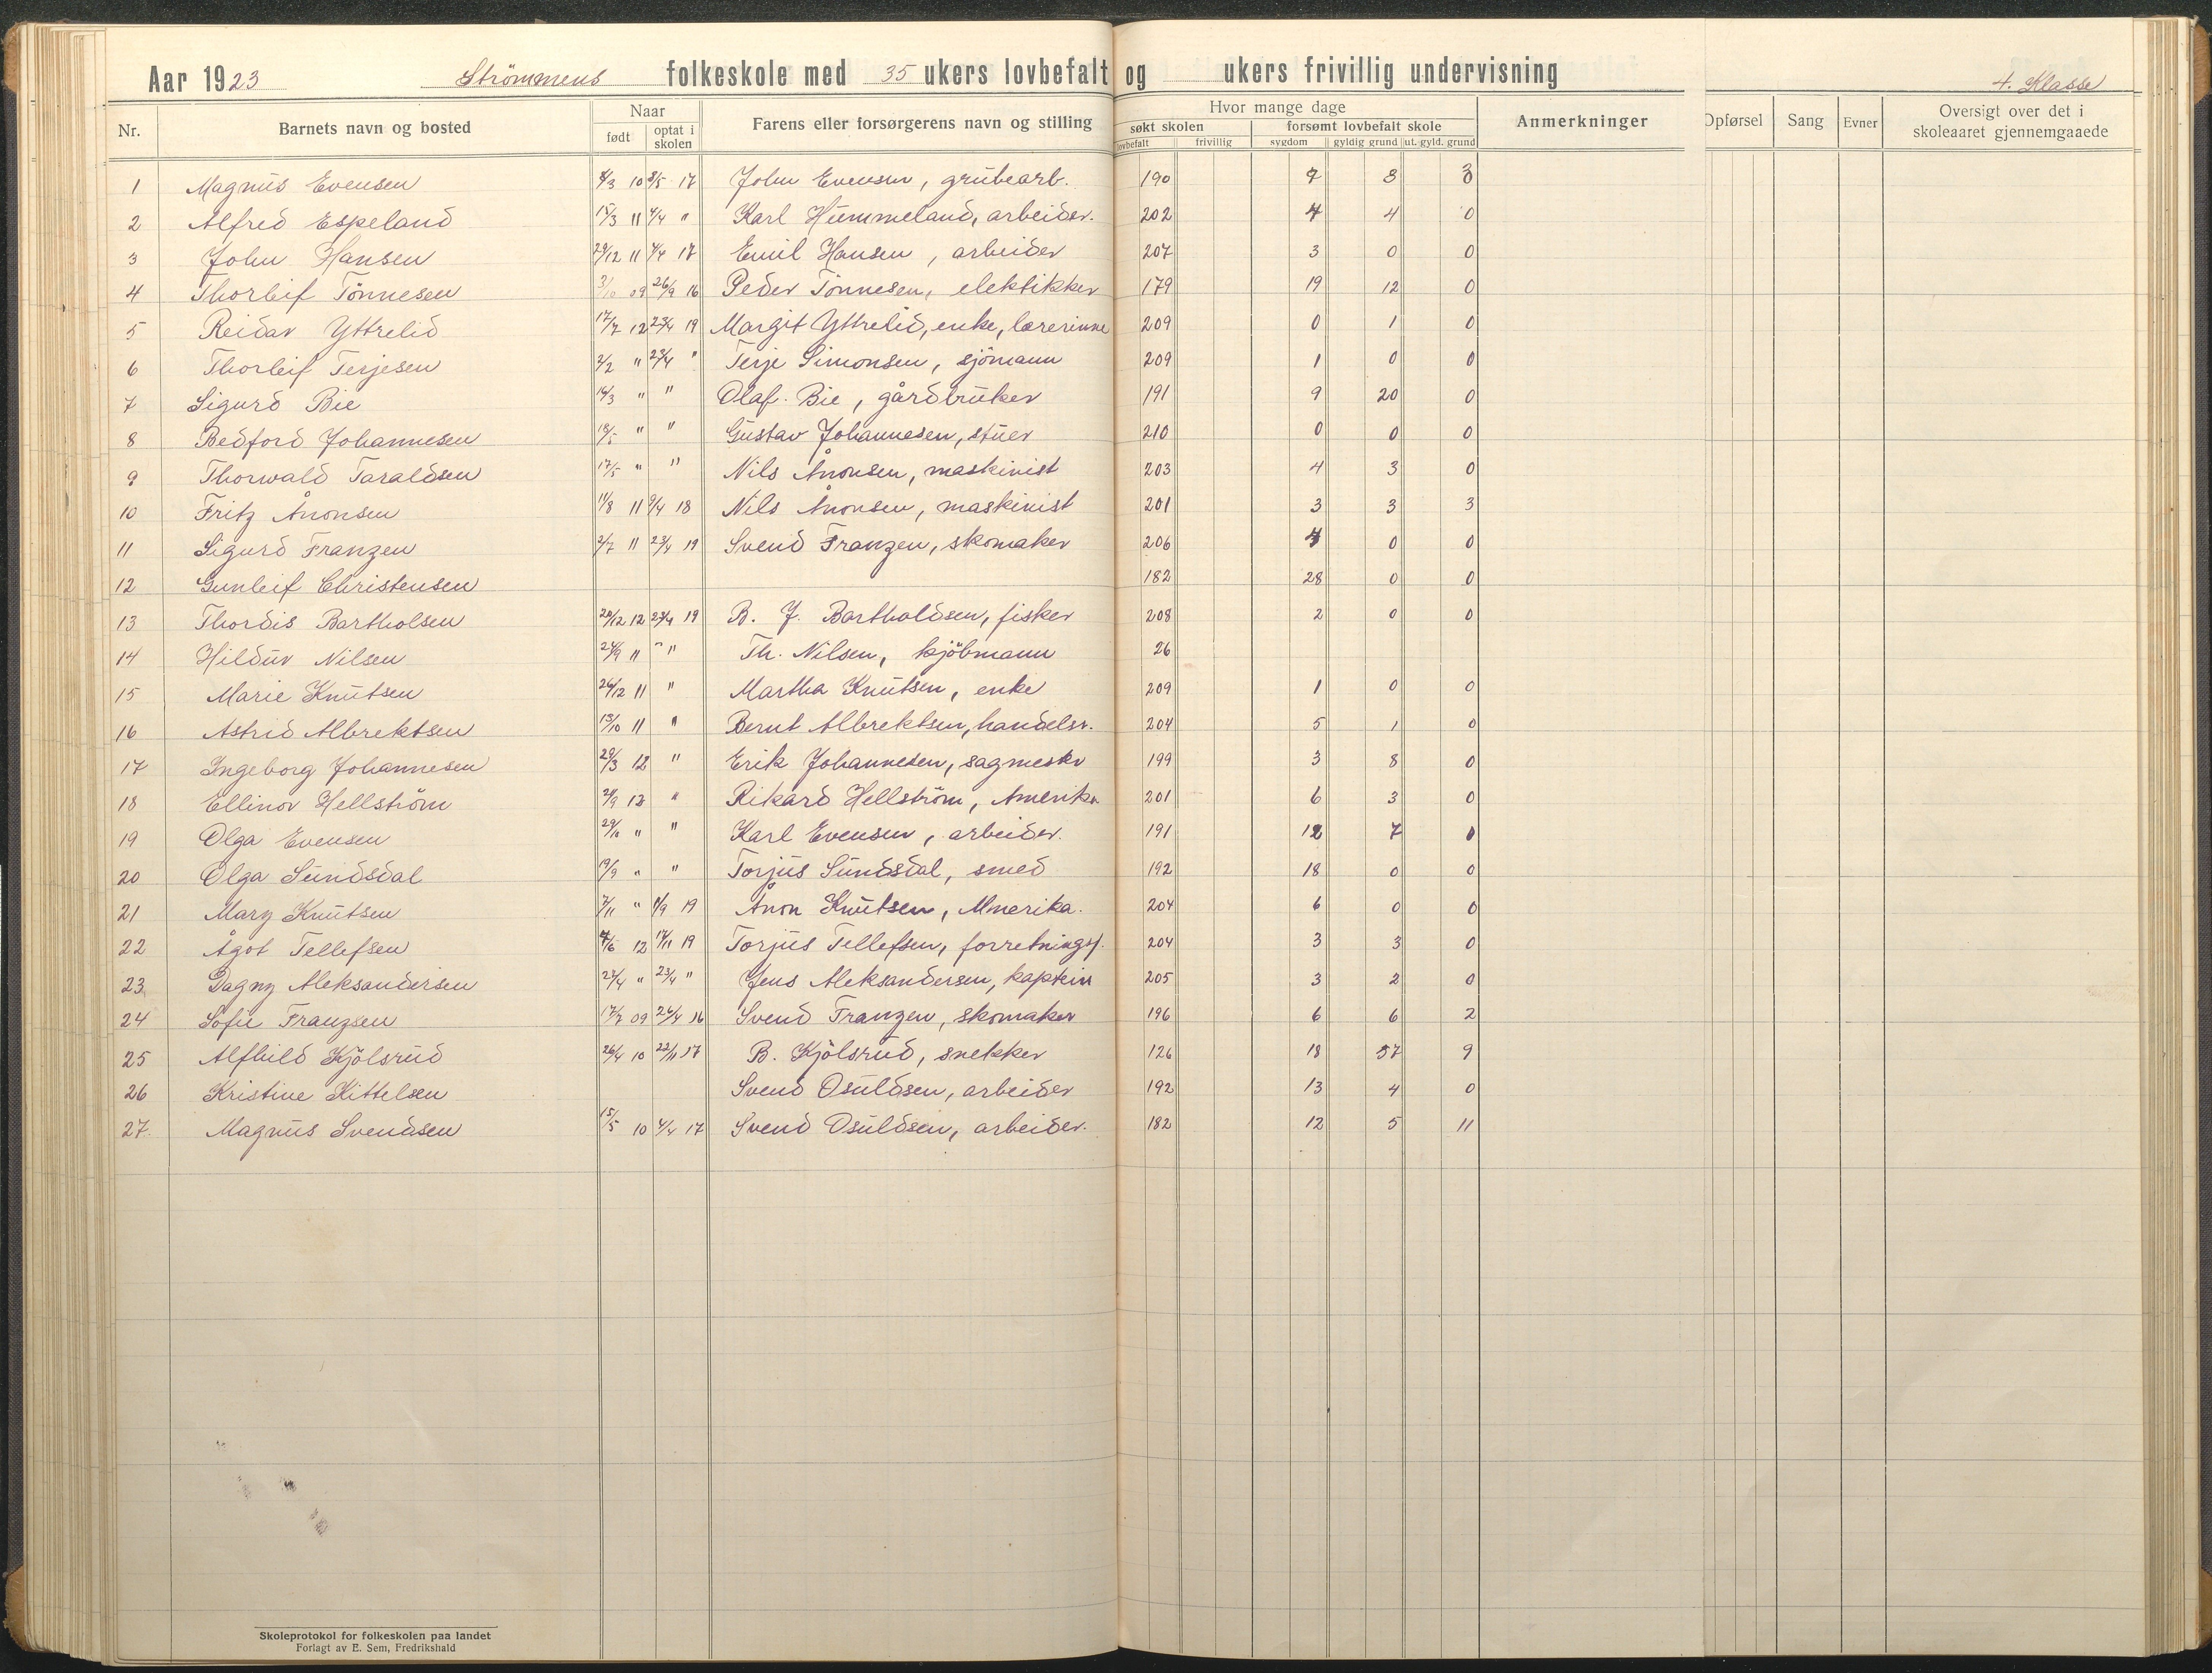 Aar 1923 Strömmens folkeskole med 35 ukers lovbefalt og ukers frivillig undervisning 4. Klasse
Nr. Barnets navn og bosted Naar født optat i skolen Farens eller forsørgerens navn og stilling Hvor mange dage søkt skolen lovbefalt frivillig forsømt lovbefalt skole sygdom gyldig grund ut. gyld. grund Anmerkninger Opførsel Sang Evner Oversigt over det i skoleaaret gjennemgaaede
1 Magnus Evensen 8/3 10 8/5 17 John Evensen, grubearb. 190 7 8 3
2 Alfred Espeland 15/3 11 4/4 " Karl Hummeland, arbeider. 202 4 4 0
3 John Hansen 29/12 11 4/4 17 Emil Hansen, arbeider 207 3 0 0
4 Thorleif Tönnesen 3/10 09 26/9 16 Peder Tönnesen, elektikker 179 19 12 0
5 Reidar Yttrelid 17/7 12 23/4 19 Margit Yttrelid, enke, lærerinne 209 0 1 0
6 Thorleif Terjesen 2/2 " 23/4 " Terje Simonsen, sjömann 209 1 0 0
7 Sigurd Bie 14/3 " " Olaf. Bie, gårdbruker 191 9 20 0
8 Bedford Johannesen 18/5 " " Gustav Johannesen, stuer 210 0 0 0
9 Thorwald Taraldsen 17/5 " " Nils Ånonsen, maskinist 203 4 3 0
10 Fritz Ånonsen 11/8 11 9/4 18 Nils Ånonsen, maskinist 201 3 3 3
11 Sigurd Franzen 2/7 11 23/4 19 Svend Franzen, skomaker 206 4 0 0
12 Gunleif Christensen 182 28 0 0
13 Thordis Bartholsen 20/12 12 23/4 19 B. J. Bartholdsen, fisker 208 2 0 0
14 Hildur Nilsen 24/9 11 " " Th. Nilsen, kjöbmann 26
15 Marie Knutsen 26/12 11 " Martha Knutsen, enke 209 1 0 0
16 Astrid Albrektsen 13/10 11 " Bernt Albrektsen, handelsr. 204 5 1 0
17 Ingeborg Johannesen 29/3 12 " Erik Johannesen, sagmestr 199 3 8 0
18 Ellinor Hellström 2/9 12 " Rikard Hellström, Amerika 201 6 3 0
19 Olga Evensen 29/10 " " Karl Evensen, arbeider. 191 12 7 0
20 Olga Sundsdal 19/9 " " Torjus Sundsdal, smed 192 18 0 0
21 Mary Knutsen 7/11 " 1/9 19 Ånon Knutsen, Amerika. 204 6 0 0
22 Ågot Tellefsen 4/6 12 17/11 19 Torjus Tellefsen, forretningsf. 204 3 3 0
23 Dagny Aleksandersen 27/4 " 23/4 " Jens Aleksandersen, kaptein 205 3 2 0
24 Sofie Franzsen 17/7 09 26/4 16 Svend Franzen, skomaker 196 6 6 2
25 Alfhild Kjölsrud 26/4 10 22/11 17 B. Kjölsrud, snekker 126 18 57 9
26 Kristine Kittelsen Svend Osuldsen, arbeider 192 13 4 0
27. Magnus Svendsen 15/5 10 4/4 17 Svend Osuldsen, arbeider. 182 12 5 11
Skoleprotokol for folkeskolen paa landet
Forlagt av E. Sem, Fredrikshald